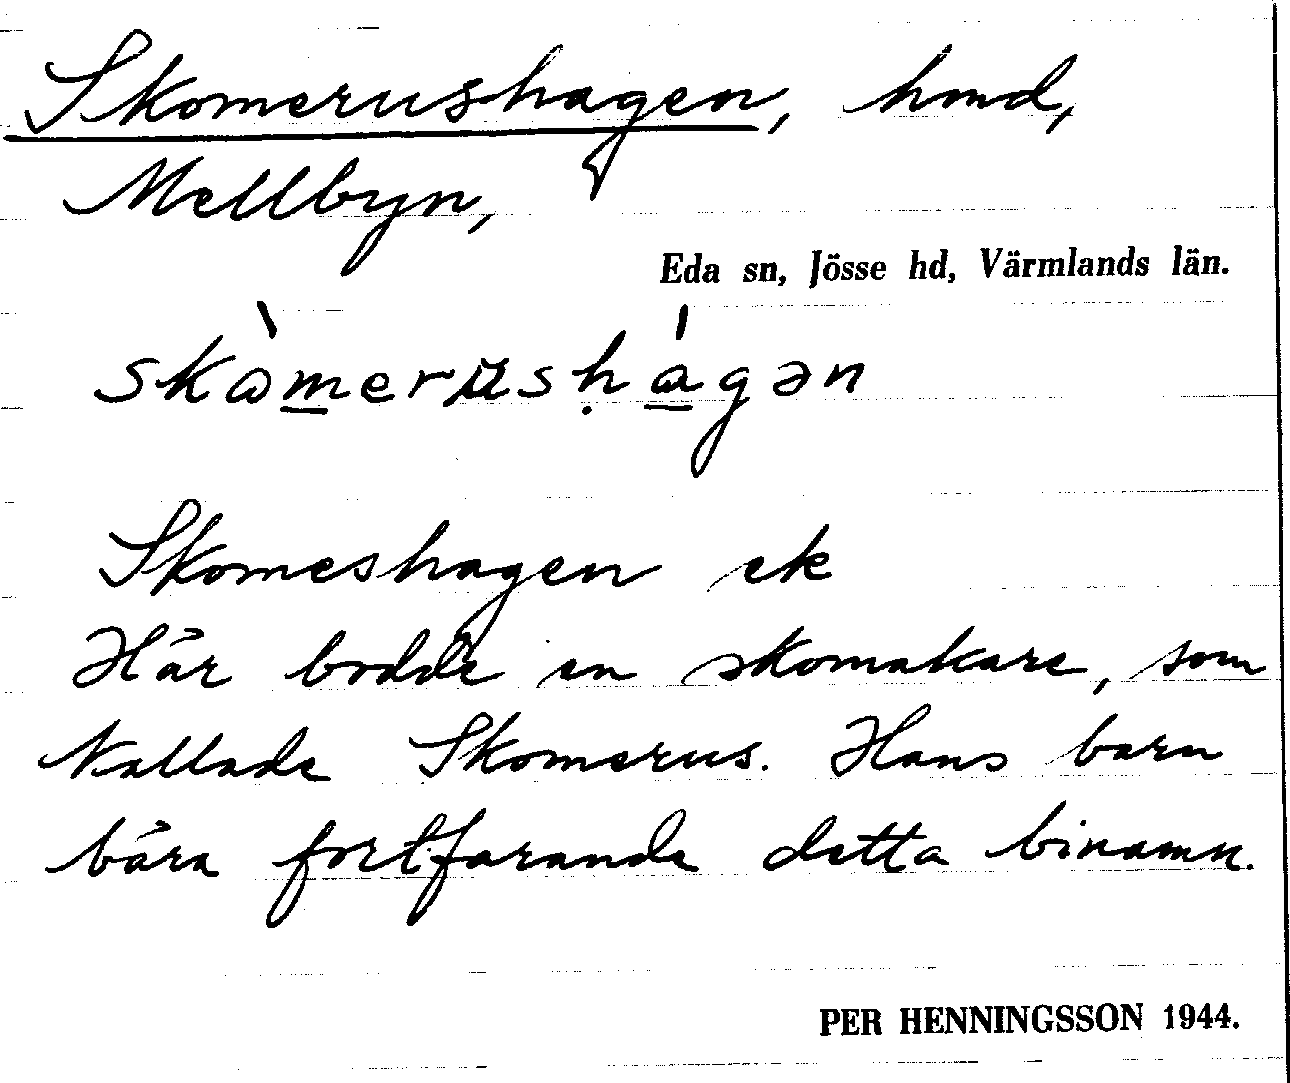 Skomerushagen, hmd,
Mellbyn,
Eda sn, Jösse hd, Värmlands län.
skòmerushágən
Skomeshagen ek
Här bodde en skomakare, som
kallade Skomerus. Hans barn
bära fortfarande detta binamn.
PER HENNINGSSON 1944.